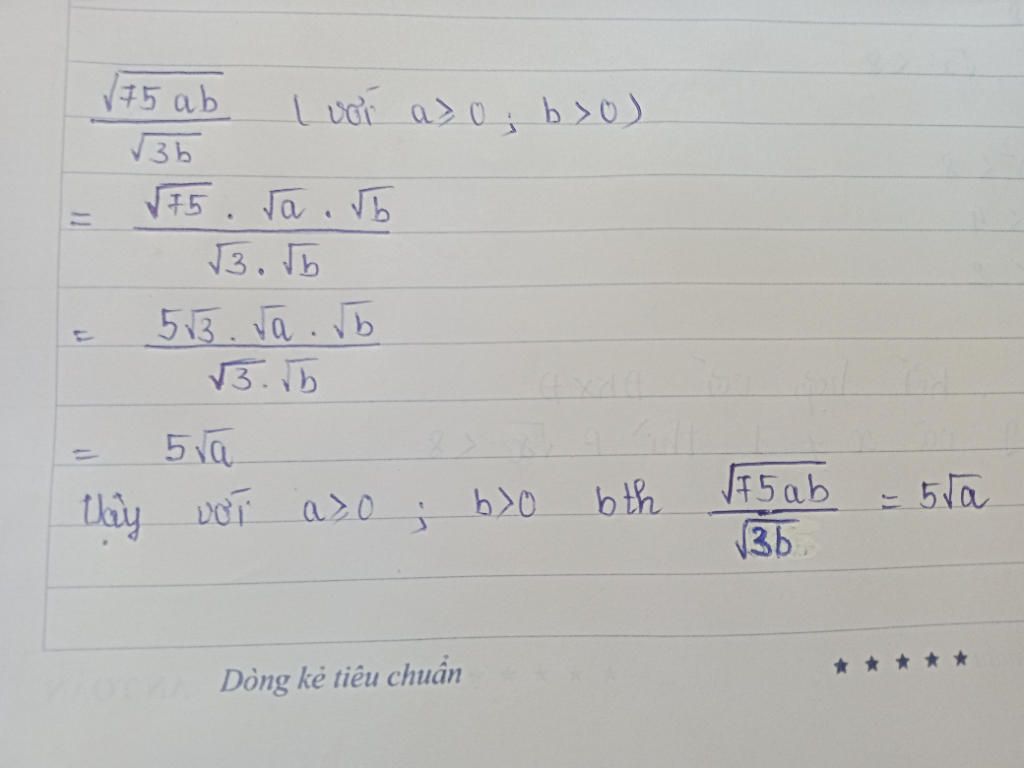 √75ab / √3b (với a ≥ 0 ; b > 0)
= √75 . √a . √b / √3 . √b
= 5√3 . √a . √b / √3 . √b
= 5√a
Vậy với a ≥ 0 ; b > 0 bth √75ab / √3b = 5√a
Dòng kẻ tiêu chuẩn ★ ★ ★ ★ ★